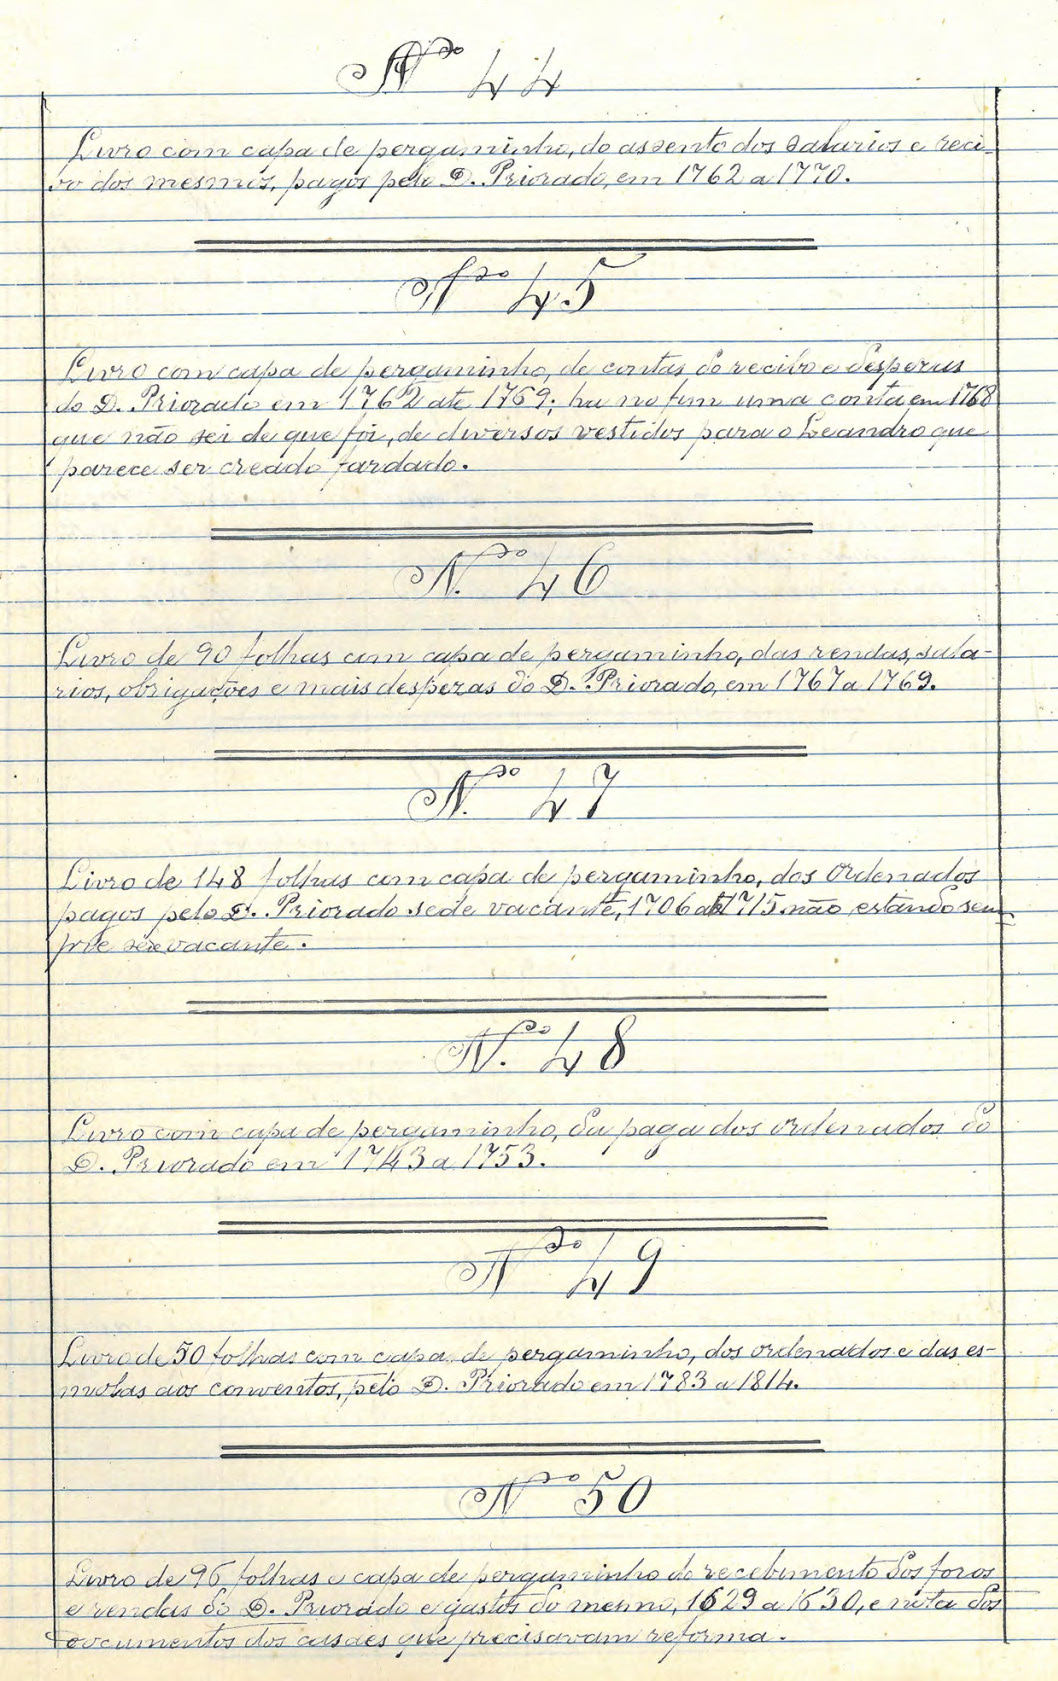 Nº 44
Livro com capa de pergaminho, do assento dos salarios e reci-
vo dos mesmos, pagos pelo D. Priorado, em 1762 a 1770.
Nº 45
Livro com capa de pergaminho, de contas do recibo e despezas
do D. Priorado em 1762 até 1769; ha no fim uma conta em 1768
que não sei de que foi, de diversos vestidos para o Leandro que
parece ser creado fardado.
N.º 46
Livro de 90 folhas com capa de pergaminho, das rendas, sala-
rios, obrigações e mais despezas do D. Priorado, em 1767 a 1769.
N.º 47
Livro de 148 folhas com capa de pergaminho, dos Ordenados
pagos pelo D. Priorado sede vacante, 1706 até 1715 não estando sem-
pre sede vacante.
N.º 48
Livro com capa de pergaminho, da paga dos ordenados do
D. Priorado em 1743 a 1753.
Nº 49
Livro de 50 folhas com capa de pergaminho, dos ordenados e das es-
molas aos conventos, pelo D. Priorado em 1783 a 1814.
Nº 50
Livro de 96 folhas e capa de pergaminho do recebimento dos foros
e rendas do D. Priorado e gastos do mesmo, 1629 a 1630, e nota dos
documentos dos casaes que precisavam reforma.